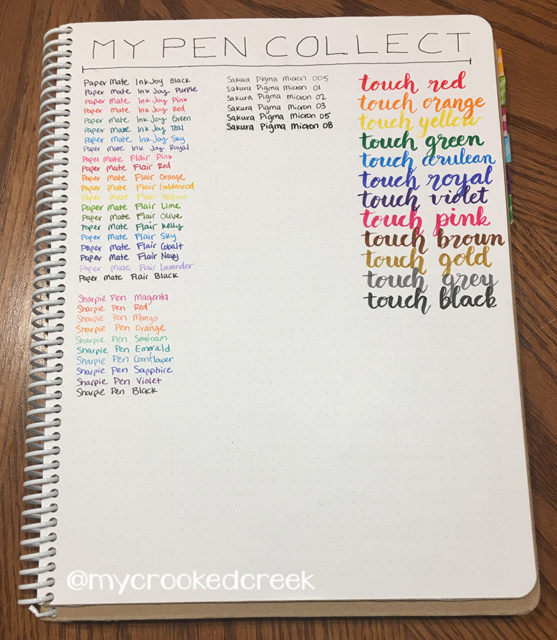 MY PEN COLLECT
Paper Mate InkJoy Black
Paper Mate InkJoy Purple
Paper Mate InkJoy Pink
Paper Mate InkJoy Red
Paper Mate InkJoy Green
Paper Mate InkJoy Teal
Paper Mate InkJoy Sky
Paper Mate InkJoy Royal
Paper Mate Flair Pink
Paper Mate Flair Red
Paper Mate Flair Orange
Paper Mate Flair Goldenrod
Paper Mate Flair Yellow
Paper Mate Flair Lime
Paper Mate Flair Olive
Paper Mate Flair Kelly
Paper Mate Flair Sky
Paper Mate Flair Cobalt
Paper Mate Flair Navy
Paper Mate Flair Lavender
Paper Mate Flair Black
Sharpie Pen Magenta
Sharpie Pen Red
Sharpie Pen Mango
Sharpie Pen Orange
Sharpie Pen Seafoam
Sharpie Pen Emerald
Sharpie Pen Cornflower
Sharpie Pen Sapphire
Sharpie Pen Violet
Sharpie Pen Black
Sakura Pigma Micron 005
Sakura Pigma Micron 01
Sakura Pigma Micron 02
Sakura Pigma Micron 03
Sakura Pigma Micron 05
Sakura Pigma Micron 08
touch red
touch orange
touch yellow
touch green
touch cerulean
touch royal
touch violet
touch pink
touch brown
touch gold
touch grey
touch black
@mycrookedcreek